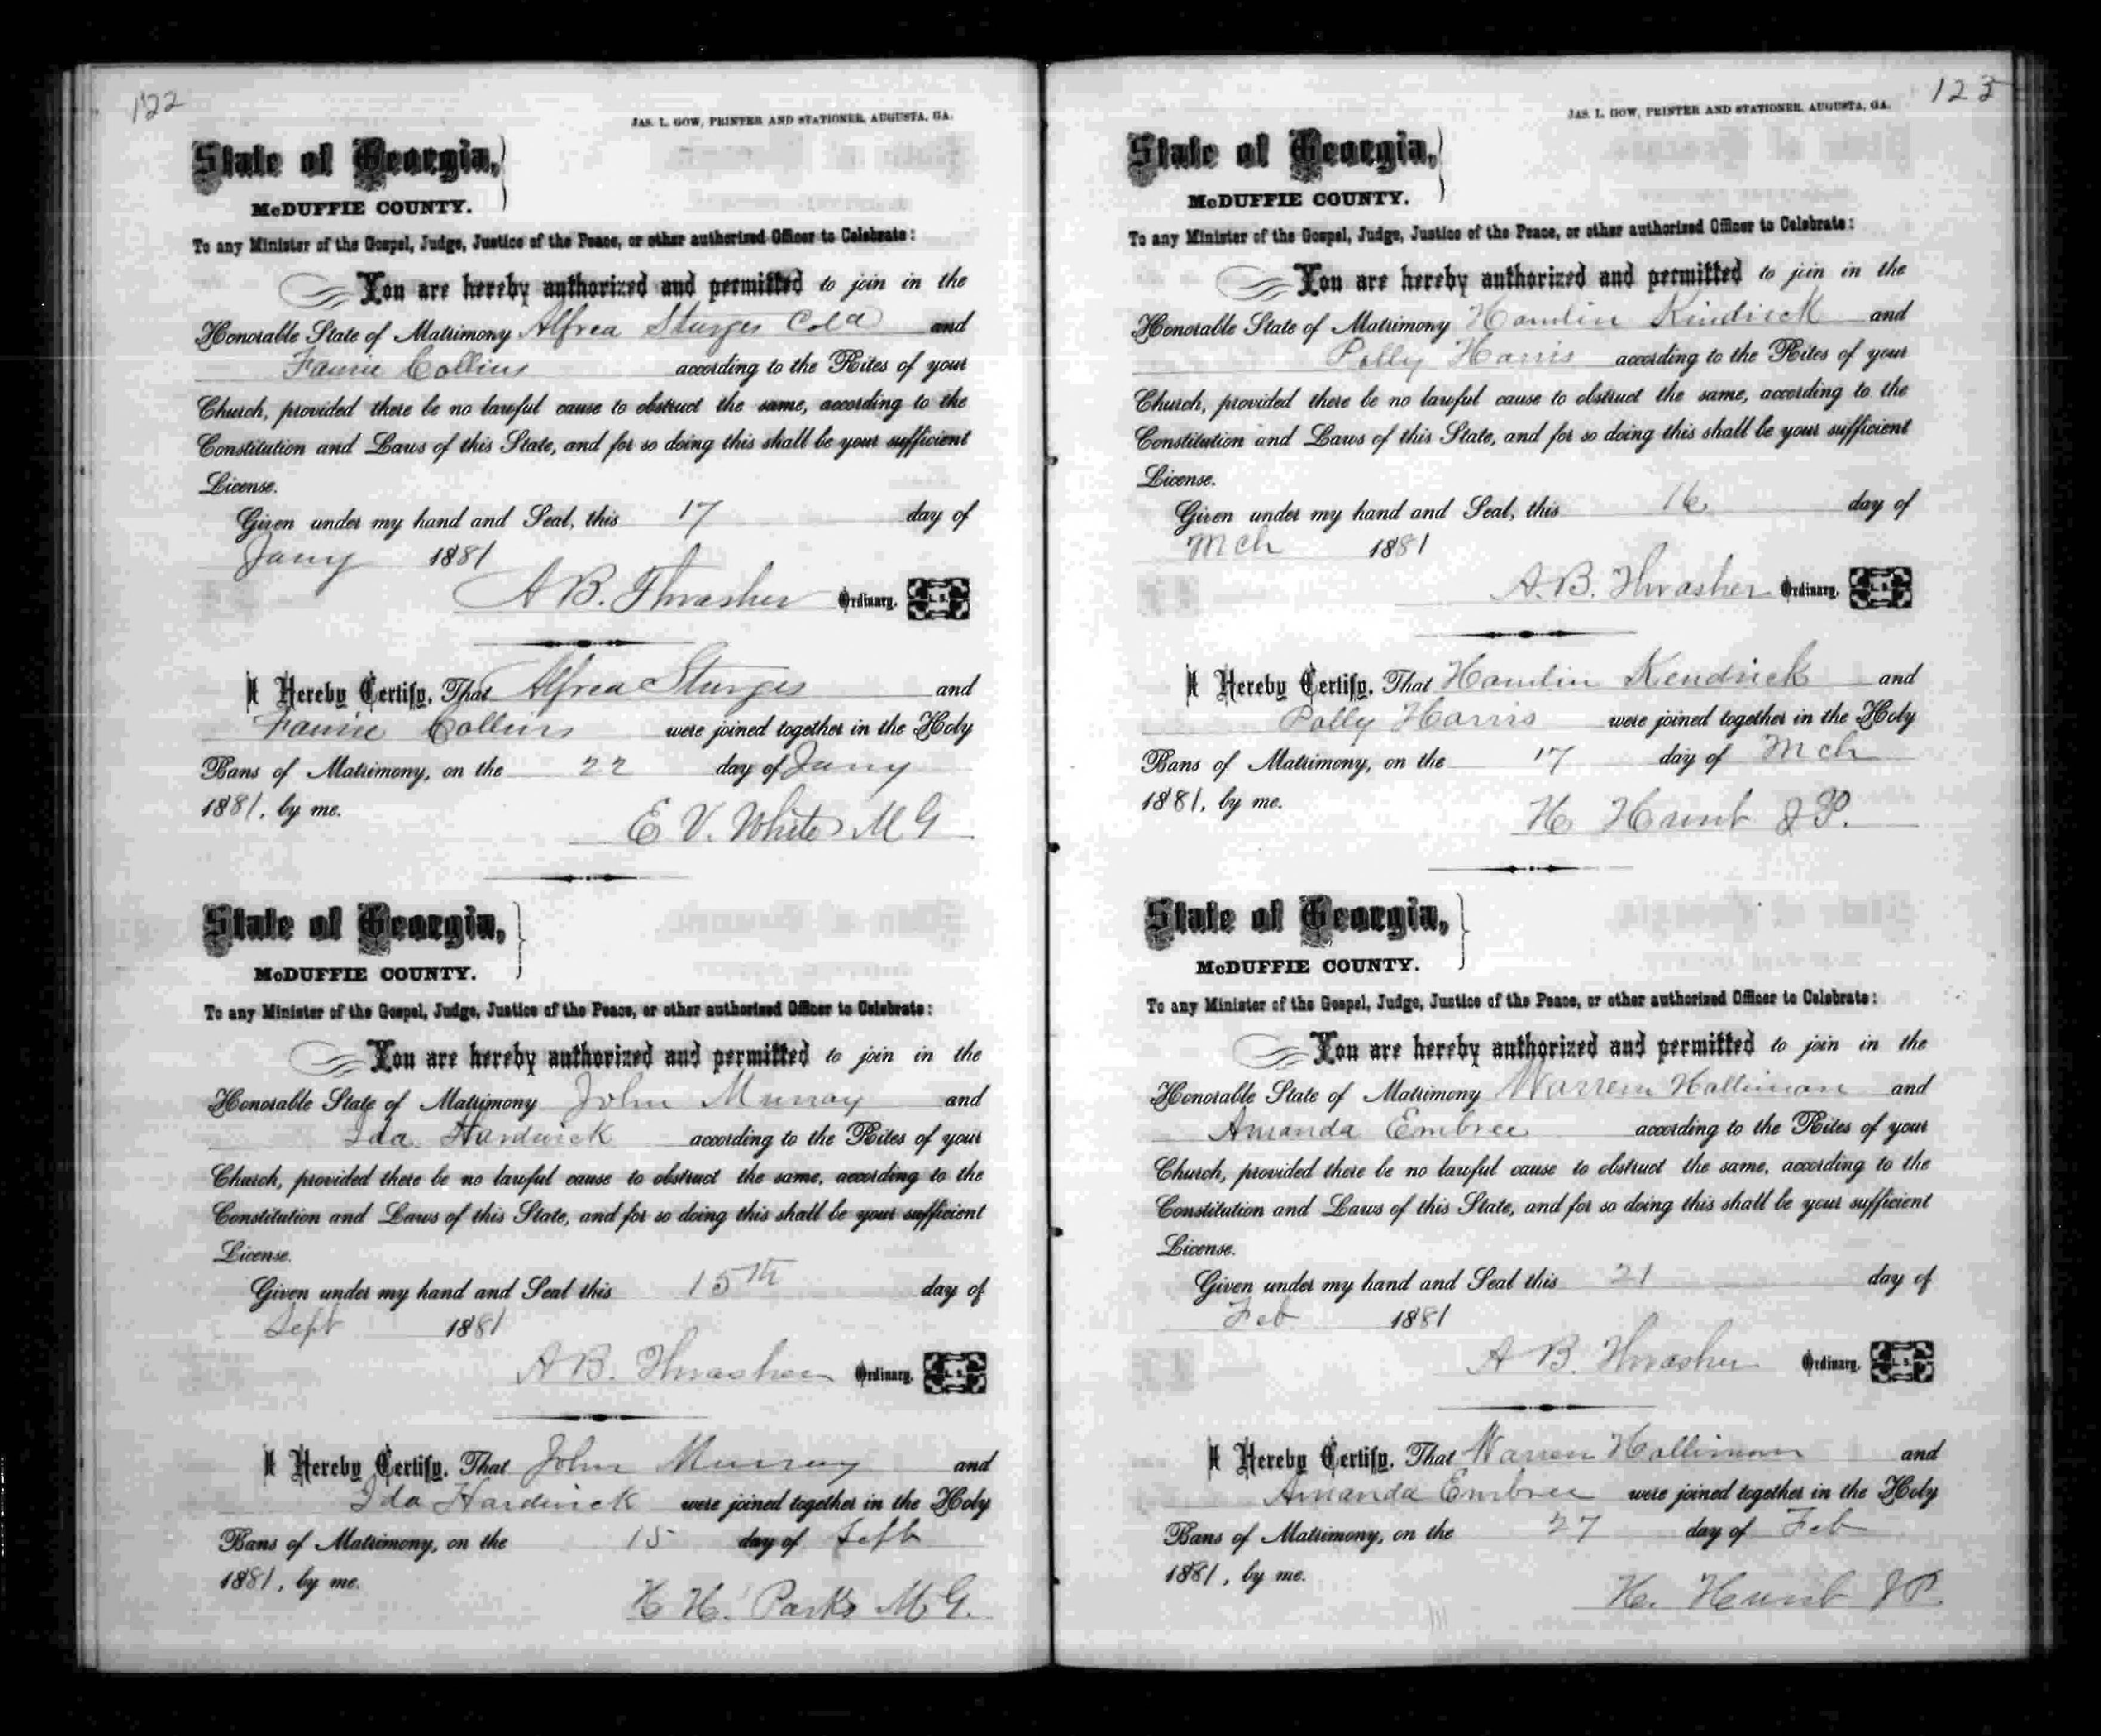 122
JAS. L. GOW, PRINTER AND STATIONER, AUGUSTA, GA.
State of Georgia,
McDUFFIE COUNTY.
To any Minister of the Gospel, Judge, Justice of the Peace, or other authorized Officer to Celebrate:
You are hereby authorized and permitted to join in the
Honorable State of Matrimony Alfred Sturges Cold and
Fannie Collins according to the Rites of your
Church, provided there be no lawful cause to obstruct the same, according to the
Constitution and Laws of this State, and for so doing this shall be your sufficient
License.
Given under my hand and Seal, this 17 day of
Jany 1881
A B. Thrasher Ordinary. L. S.
I Hereby Certify, That Alfred Sturges and
Fannie Collins were joined together in the Holy
Bans of Matrimony, on the 22 day of Jany
1881, by me.
E V. White M G
State of Georgia,
McDUFFIE COUNTY.
To any Minister of the Gospel, Judge, Justice of the Peace, or other authorized Officer to Celebrate:
You are hereby authorized and permitted to join in the
Honorable State of Matrimony John Murray and
Ida Hardwick according to the Rites of your
Church, provided there be no lawful cause to obstruct the same, according to the
Constitution and Laws of this State, and for so doing this shall be your sufficient
License.
Given under my hand and Seal this 15th day of
Sept 1881
A B. Thrasher Ordinary. L. S.
I Hereby Certify, That John Murray and
Ida Hardwick were joined together in the Holy
Bans of Matrimony, on the 15 day of Sept
1881, by me.
H. Parks M G.
123
JAS. L. GOW, PRINTER AND STATIONER, AUGUSTA, GA.
State of Georgia,
McDUFFIE COUNTY.
To any Minister of the Gospel, Judge, Justice of the Peace, or other authorized Officer to Celebrate:
You are hereby authorized and permitted to join in the
Honorable State of Matrimony Hamlin Kindrick and
Polly Harris according to the Rites of your
Church, provided there be no lawful cause to obstruct the same, according to the
Constitution and Laws of this State, and for so doing this shall be your sufficient
License.
Given under my hand and Seal, this 16 day of
Mch 1881
A. B. Thrasher Ordinary. L. S.
I Hereby Certify, That Hamlin Kendrick and
Polly Harris were joined together in the Holy
Bans of Matrimony, on the 17 day of Mch
1881, by me.
H Hunt J P.
State of Georgia,
McDUFFIE COUNTY.
To any Minister of the Gospel, Judge, Justice of the Peace, or other authorized Officer to Celebrate:
You are hereby authorized and permitted to join in the
Honorable State of Matrimony Warren Holliman and
Amanda Embree according to the Rites of your
Church, provided there be no lawful cause to obstruct the same, according to the
Constitution and Laws of this State, and for so doing this shall be your sufficient
License.
Given under my hand and Seal this 21 day of
Feb 1881
A B. Thrasher Ordinary. L. S.
I Hereby Certify, That Warren Holliman and
Amanda Embree were joined together in the Holy
Bans of Matrimony, on the 27 day of Feb
1881, by me.
H. Hunt J P.